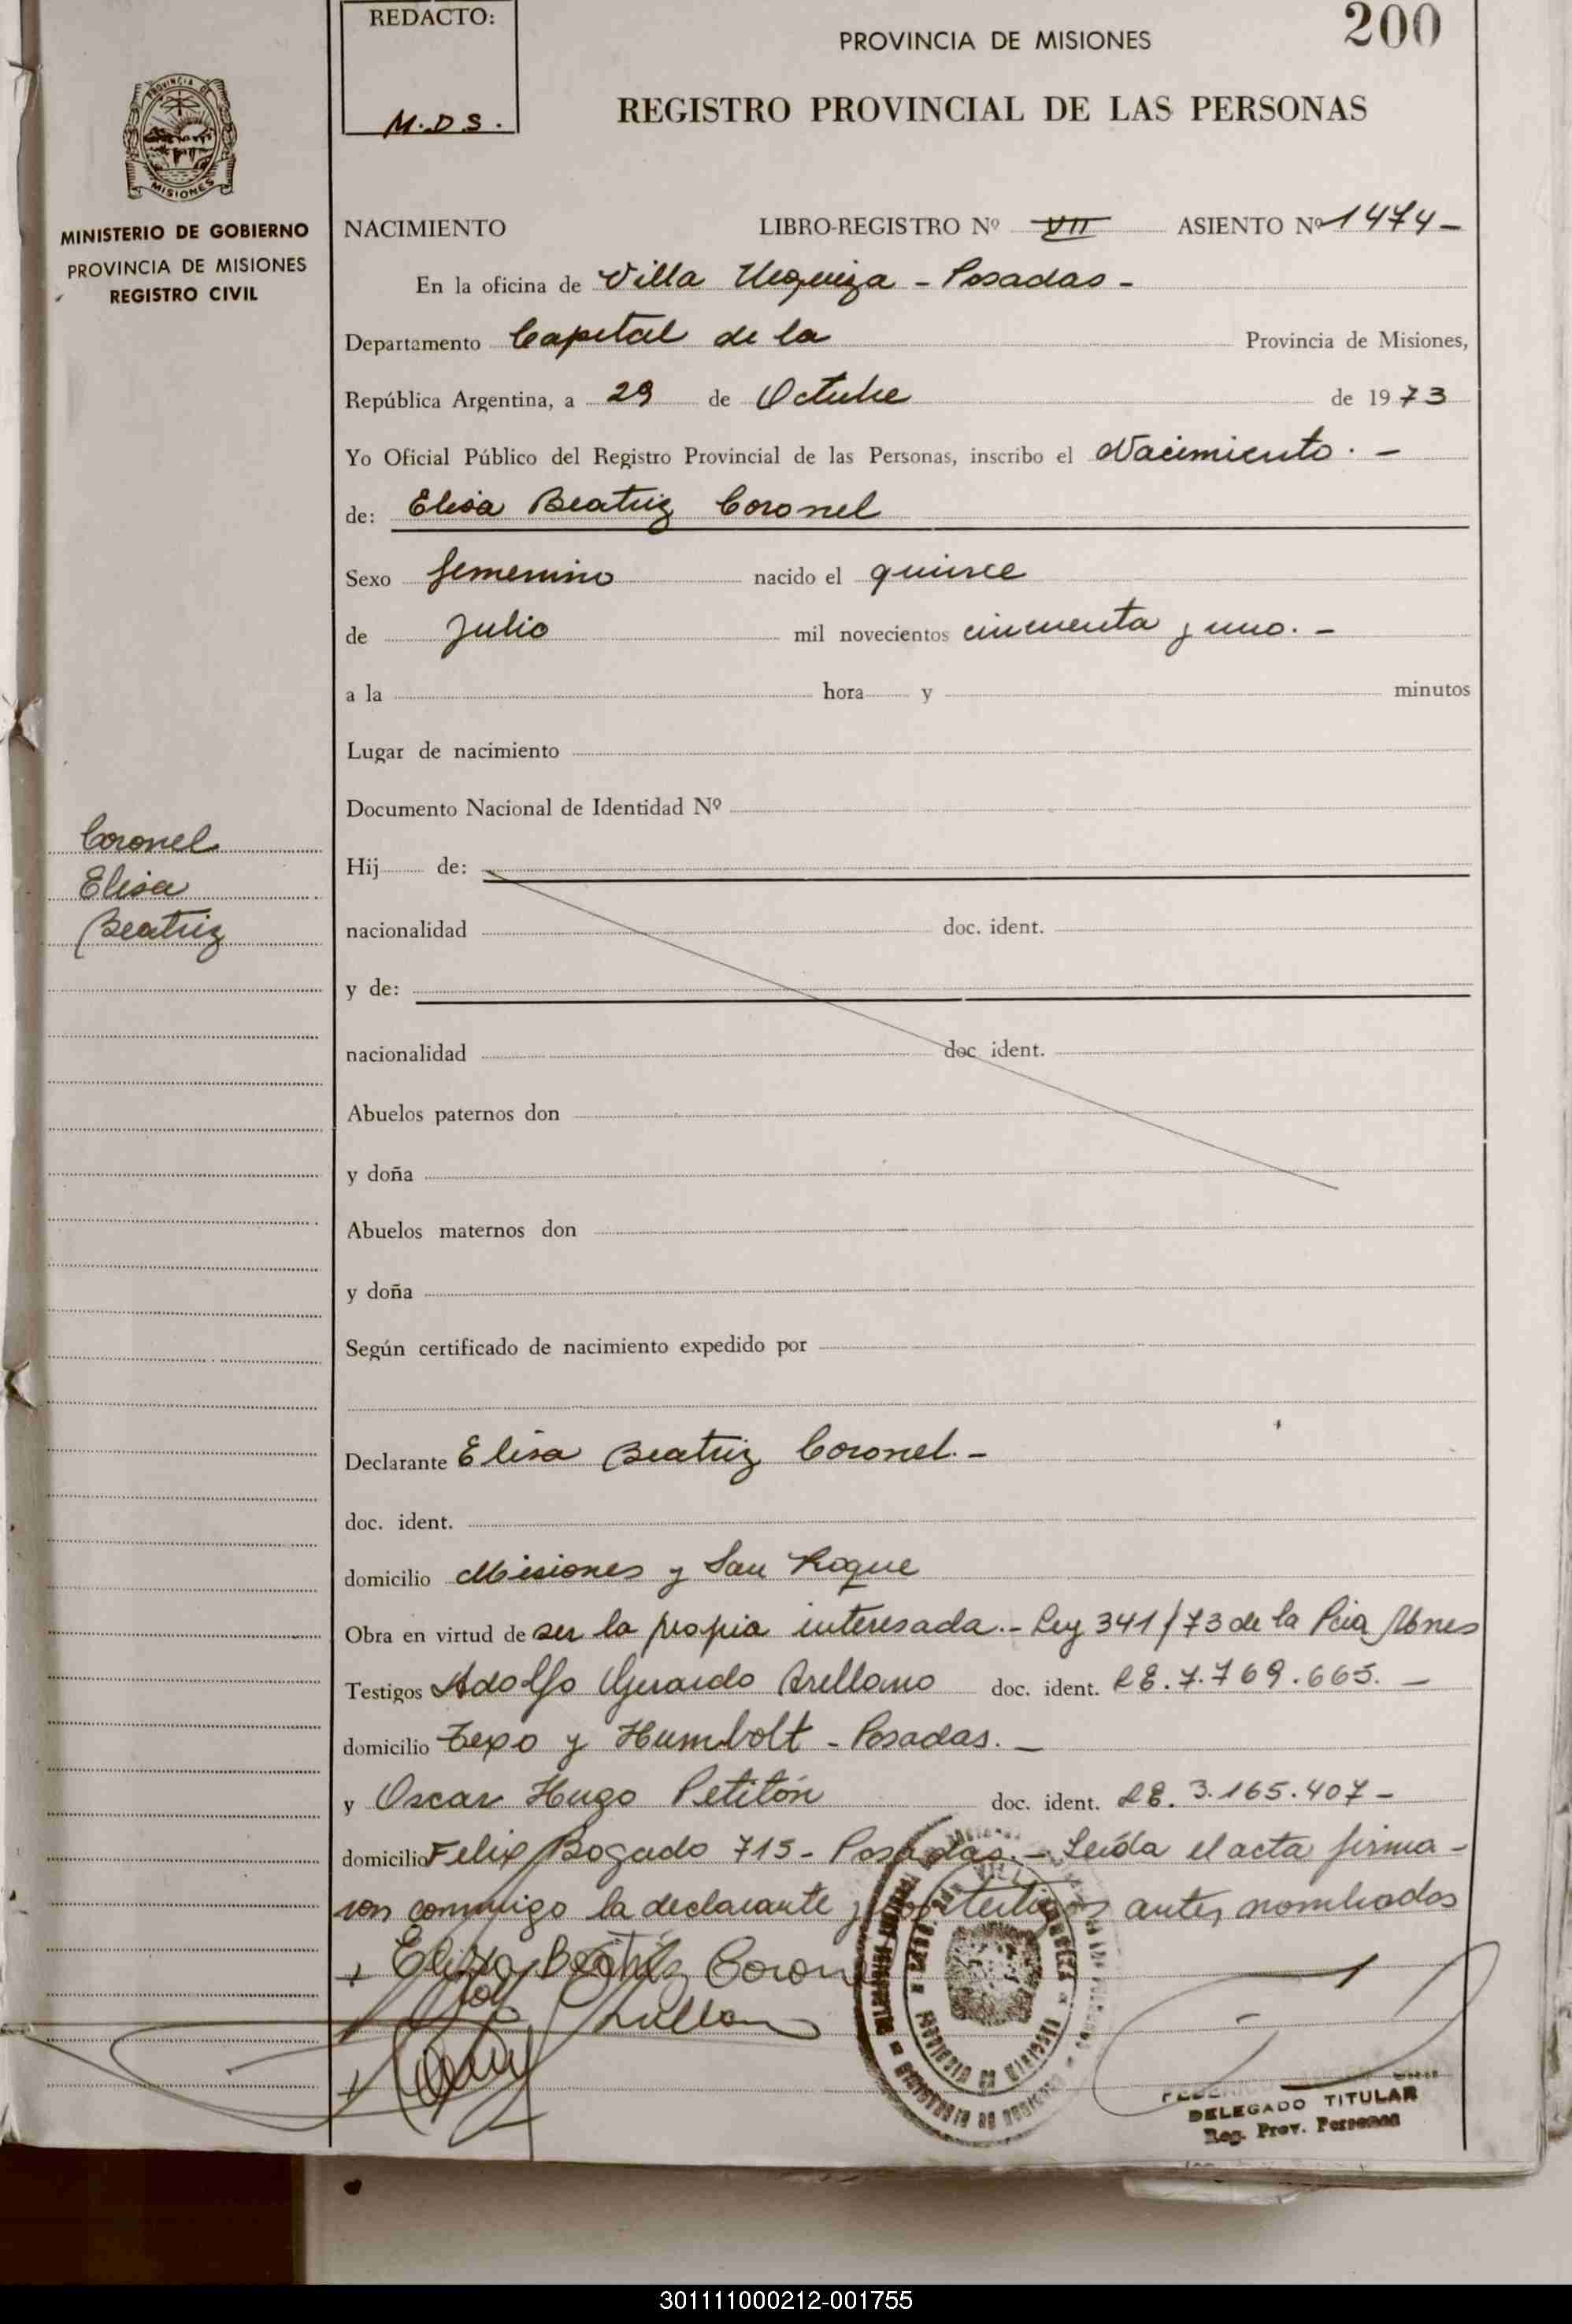 REDACTO:
M.D.S.
PROVINCIA DE MISIONES
200
REGISTRO PROVINCIAL DE LAS PERSONAS
PROVINCIA DE
MISIONES
MINISTERIO DE GOBIERNO
PROVINCIA DE MISIONES
REGISTRO CIVIL
NACIMIENTO LIBRO-REGISTRO Nº VII ASIENTO Nº 1474-
En la oficina de Villa Urquiza - Posadas -
Departamento Capital de la Provincia de Misiones,
República Argentina, a 29 de Octubre de 1973
Yo Oficial Público del Registro Provincial de las Personas, inscribo el Nacimiento. -
de: Elisa Beatriz Coronel
Sexo femenino nacido el quince
de Julio mil novecientos cincuenta y uno. -
a la hora y minutos
Lugar de nacimiento
Documento Nacional de Identidad Nº
Coronel
Elisa
Beatriz
Hij de:
nacionalidad doc. ident.
y de:
nacionalidad doc ident.
Abuelos paternos don
y doña
Abuelos maternos don
y doña
Según certificado de nacimiento expedido por
Declarante Elisa Beatriz Coronel. -
doc. ident.
domicilio Misiones y San Roque
Obra en virtud de ser la propia interesada. - Ley 341/73 de la Pcia Mnes
Testigos Adolfo Gerardo Arellano doc. ident. LE. 7.769.665. -
domicilio Zexo y Humbolt - Posadas. -
y Oscar Hugo Petitón doc. ident. LE. 3.165.407 -
domicilio Felix Bogado 715 - Posadas. - Leída el acta firma-
ron conmigo la declarante y los testigos antes nombrados
Elisa Beatriz Coron
DELEGADO TITULAR
Reg. Prov. Personas
301111000212-001755